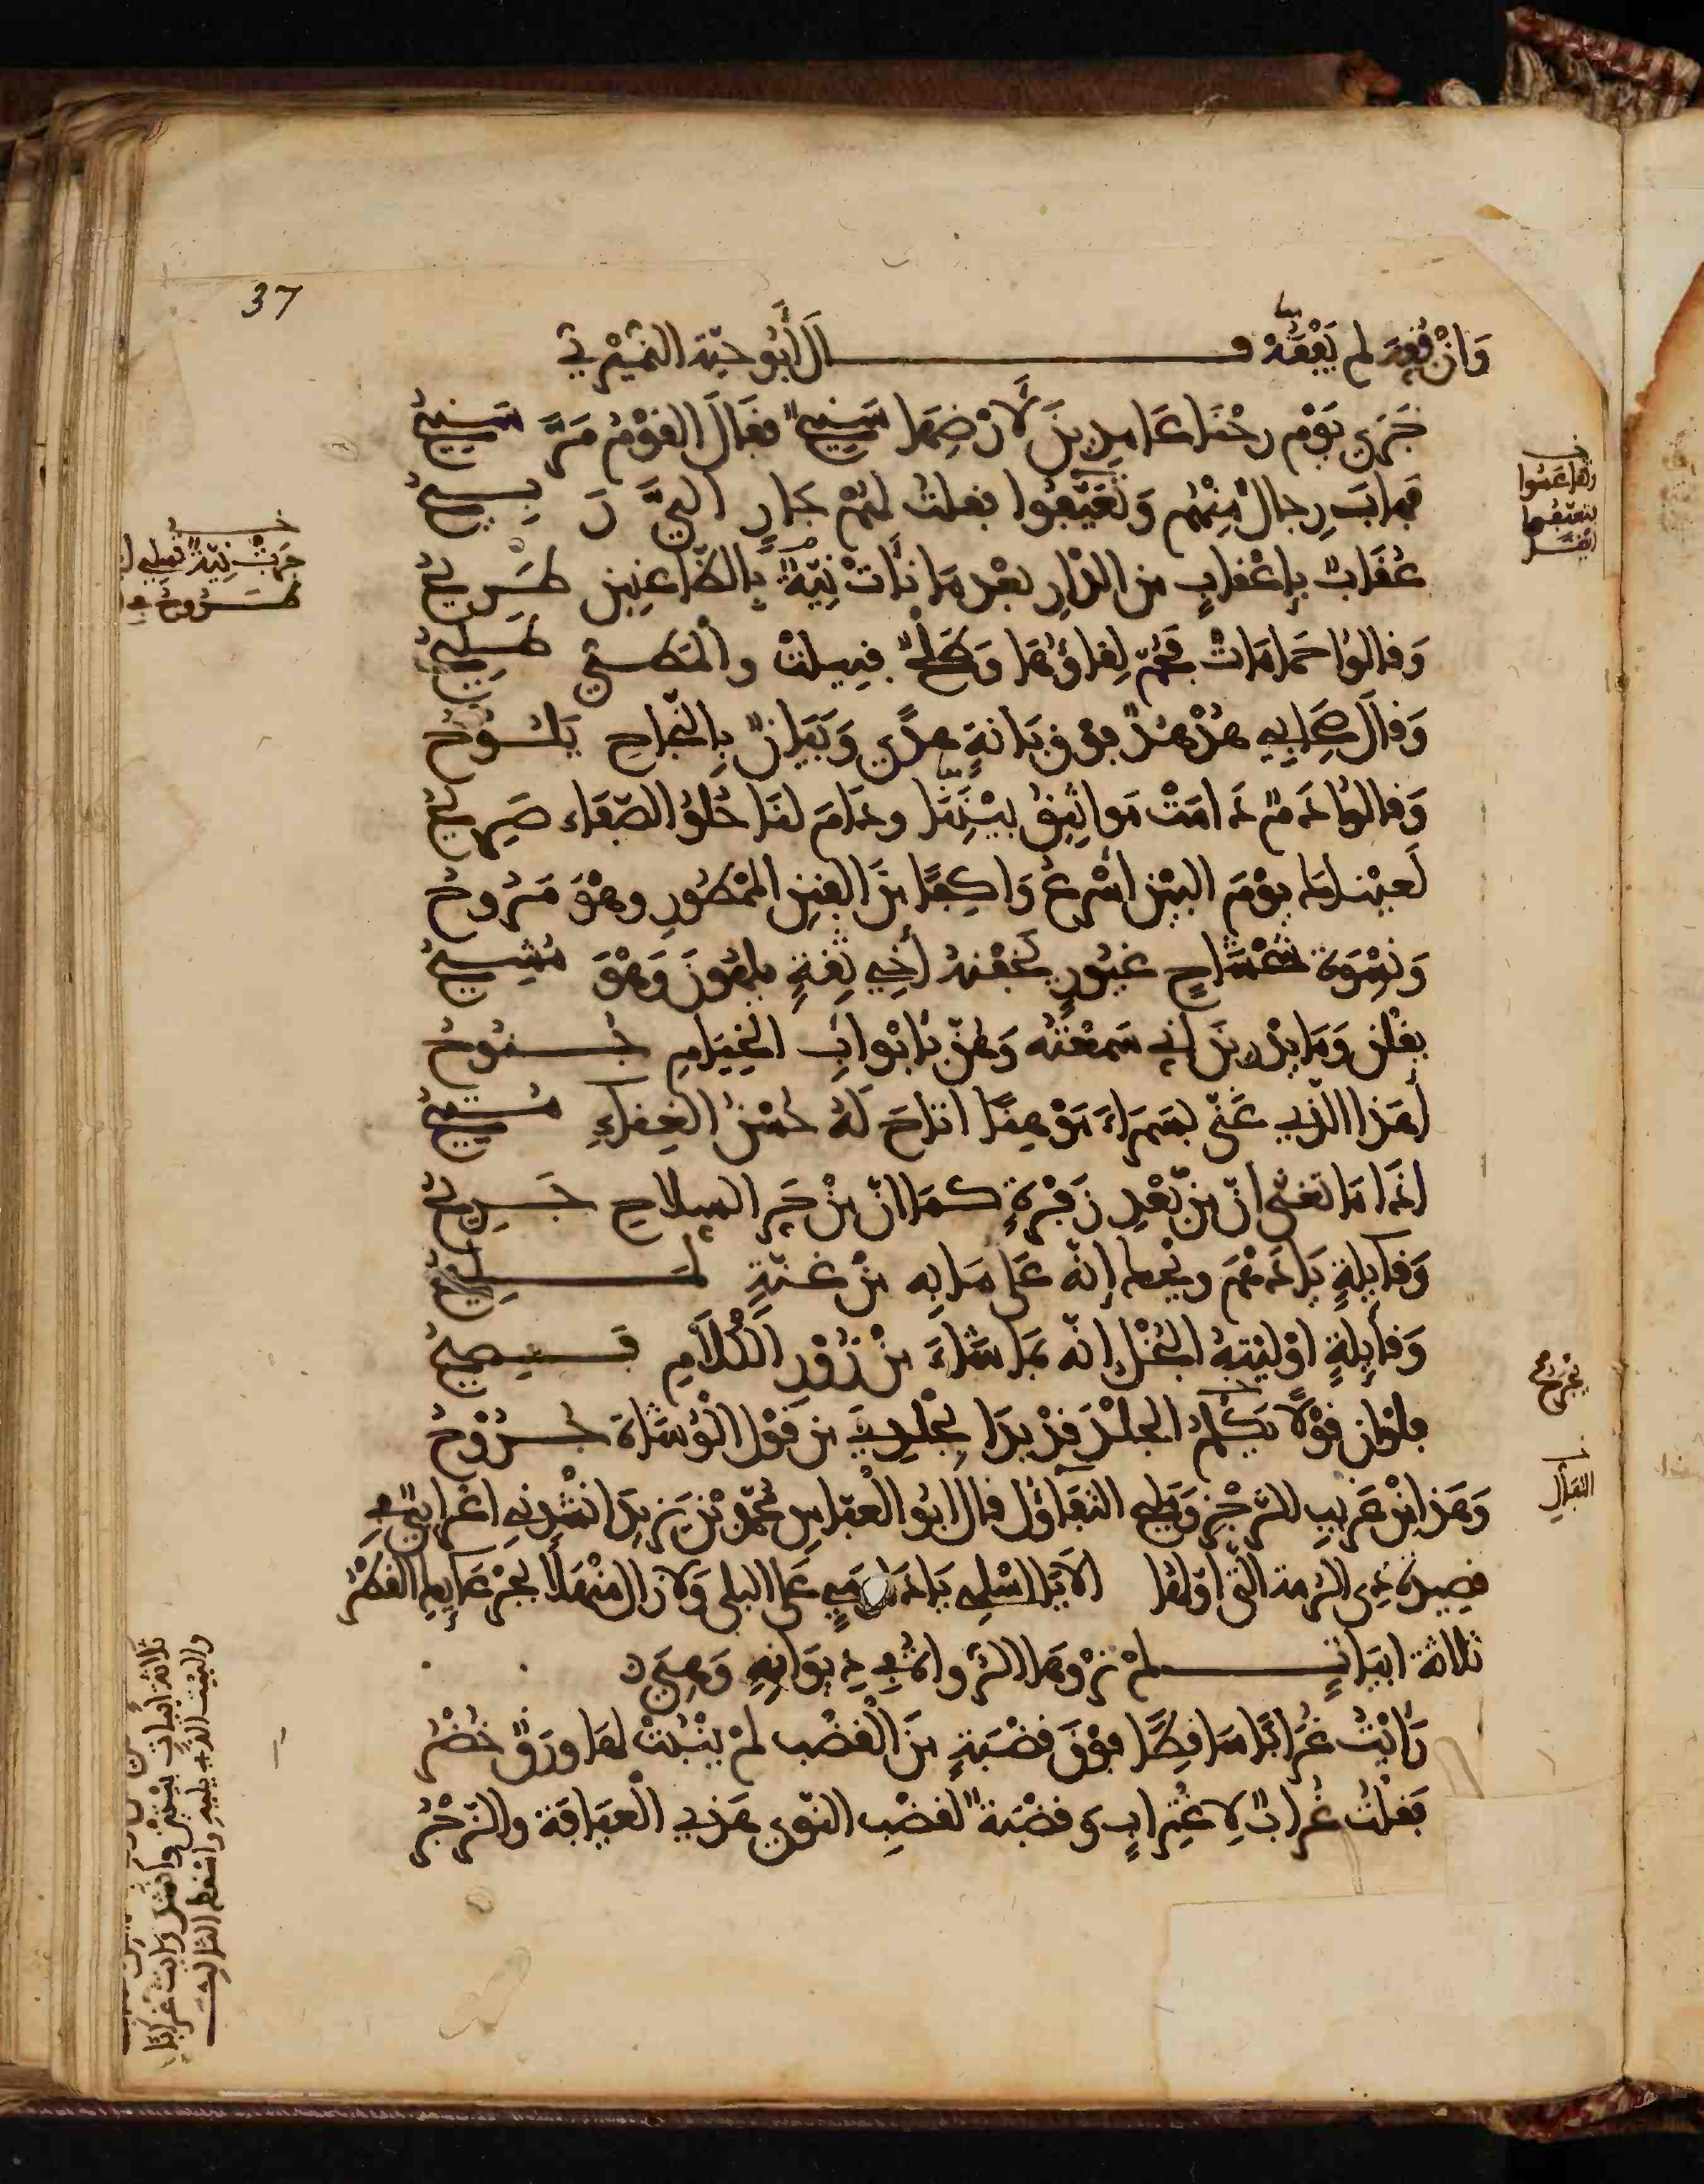 37
وَانْ فُقِدَ لم يُفْقَدْ وقال أَبُو حيّة النميْريّ
جَرَى يَوْم رحْنَا عَامدِينَ لَارْضِهَا سَنِيحٌ فقَالَ القوْمُ مَرَّ سَنِيحُ
فهابَ رِجالٌ مِنْهُم وَتَعَيَّفُوا فقلتُ لهُمْ جَارٍ اليَّ رَبِيحُ
عُقَابٌ بِإعْقابٍ من الدّارِ بعْدَ مَا نَأَتْ نِيّةٌ بِالظّاعِنِينَ طَرِيحُ
وَقالوُا حَمَامَاتٌ فحُمّ لِقاؤُهَا وَطَلْحٌ فنيلتْ والمَطيُّ طَلِيحُ
وَقالَ صِحَابِي هُدْهُدٌ فوْقَ بَانةٍ هدًى وَبَيَانٌ بِالنّجاحِ يَلُوحُ
وَقالوُا دَمٌ دَامَتْ مَوَاثِيقُ بيْنَنَا ودَامَ لنَا حُلْوُ الصّفَاء صَرِيحُ
لَعيْنَاه يوْمَ البيْن أَسْرعُ وَاكِفًا منَ الفنَنِ المَمْطُورِ وهْوَ مَرُوحُ
وَنِسْوَة شَحْشَاحٍ غيُورٍ يَخَفْنهُ أَخِي ثِقةٍ يلهُونَ وَهْوَ مُشِيحُ
يقُلْنَ وَمَا يدْرينَ أني سَمِعْتُه وَهُنّ بأبْوابِ الخِيَامِ جُنوُحُ
أهَذا الّذي غَنّى بسَمراءَ مَوْهِنًا اتاحَ لَهُ حُسْنَ الغِناءِ مُتِيحُ
اذَا مَا تغنّى انّ منْ بَعْدِ زَفْرةٍ كمَا انّ منْ حَرّ السِلاحِ جَرِيحُ
وَقايِلةٍ يَا دَهْمَ ويْحكِ إنّه عَلى مَا بِه منْ غنّةٍ لَمَلِيحُ
وَقايِلةٍ اوْليْتهُ البُخْل انّه بمَا شَاءَ منْ زُوْرِ الكَلَامِ فَصِيحُ
فلوْ انّ قوْلًا يَكْلِمُ الجلْدَ قدْ بدَا بجلْدِيَ من قوْلِ الوُشَاة جُرُوْحُ
وَهَذا منْ غَرِيبِ الزّجْرِ وَمَليح التفَاؤُل قالَ ابُو العبّاسِ محمّدُ بْنُ يزيدَ انْشَدنِي اعْرابيٌّ في
قصِيدة ذي الرّمة التي اوّلها الا يَا اسْلمي يَا دَارَ مَيٍّ عَلى البِلى وَلا زالَ مُنْهَلًّا بجرْعَايِكِ القطْرُ
ثلاثة ابيَاتٍ لمْ تَرْوهَا الرّواة في دِيوَانِهِ وَهيَ
رَأيْتُ غُرَابًا سَاقِطًا فوْقَ قضْبَةٍ منَ القُضْبِ لمْ يَنْبُتْ لهَا ورَقٌ خُضْرُ
فقلْتُ غُرابٌ لِاغْتِرابٍ وَقضْبَةٌ لقضْبِ النّوى هَذي العيَافة والزّجْرُ
يُجرحُ
التفَالِ
ثلاثة ابيات بيْتين وانشد رايت غرابًا
والبيْت الذي يليه واسْقط الثالث